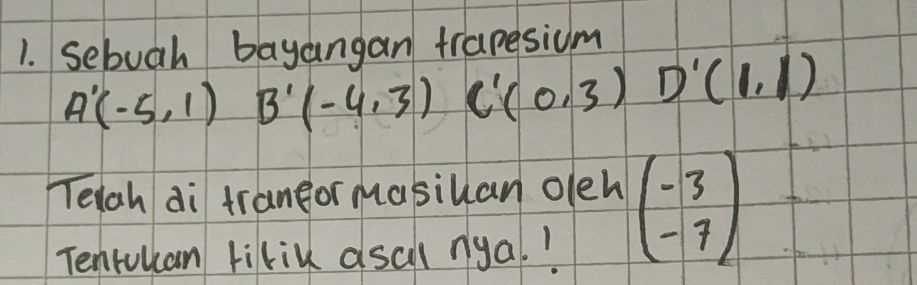 1. Sebuah bayangan trapesium
A'(-5,1) B'(-4,3) C'(0,3) D'(1,1)
Telah di tranformasikan oleh (-3
-7)
Tentukan titik asal nya.!